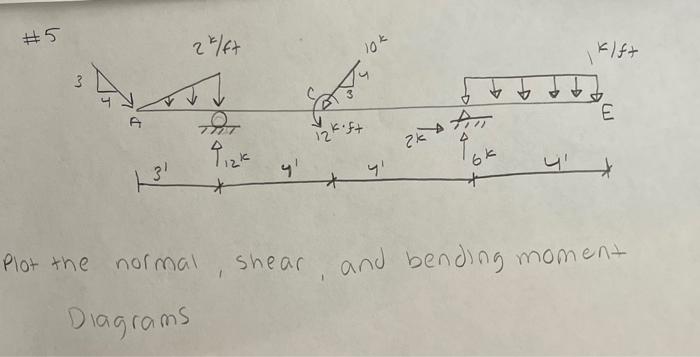 #5
2 k/ft
10k
1 k/ft
3
4
4
3
C
A
E
12k·ft
2k
12k
6k
3'
4'
4'
4'
Plot the normal, shear, and bending moment
Diagrams